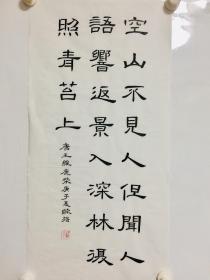 空山不見人但聞人
語響返景入深林復
照青苔上
唐王維鹿柴庚子夏